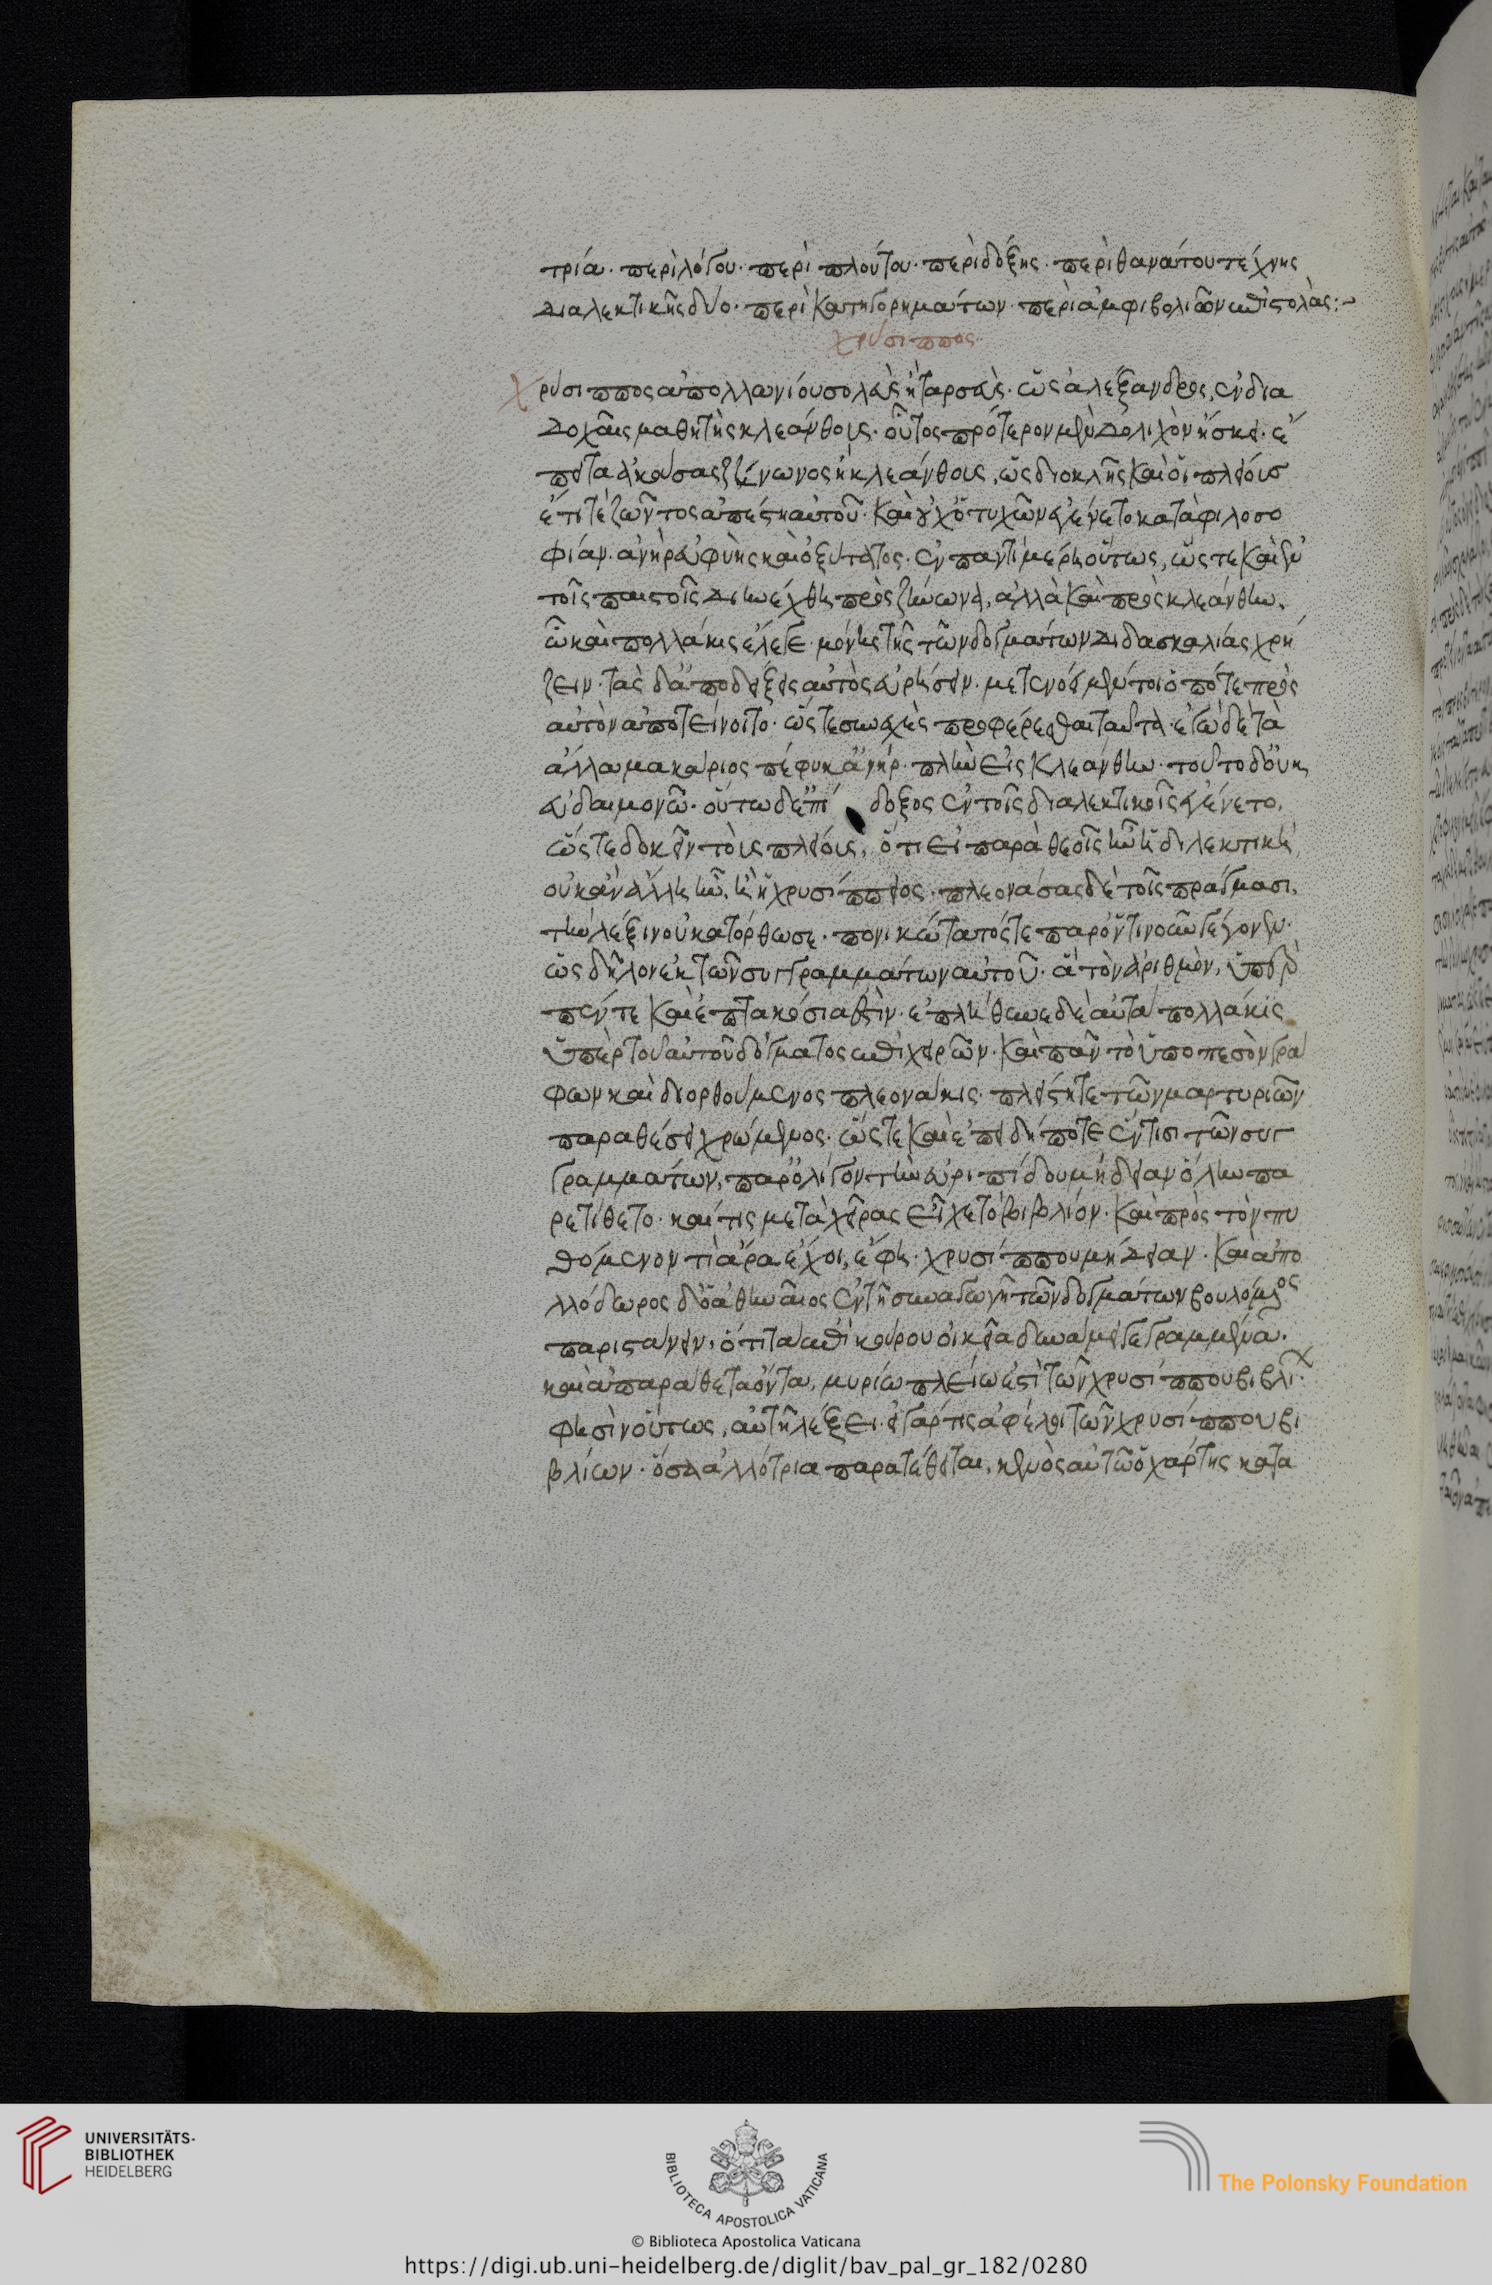 τρία· περὶ λόγου· περὶ πλούτου· περὶ δόξης· περὶ θανάτου τέχνης
διαλεκτικῆς δύο· περὶ κατηγορημάτων· περὶ ἀμφιβολιῶν ἐπιστολὰς:~
χρύσιππος
χρύσιππος ἀπολλωνίου σολεὺς ἢ ταρσεὺς· ὡς ἀλέξανδρος, ἐν δια
δοχαῖς μαθητὴς κλεάνθους· οὗτος πρότερον μὲν δολιχὸν ἤσκει· ἔ
πειτα ἀκούσας ζήνωνος ἢ κλεάνθους, ὡς διοκλῆς καὶ οἱ πλείους
ἔτι τε ζῶντος ἀπέστη αὐτοῦ· καὶ οὐχ ὁ τυχὼν ἐγένετο κατὰ φιλοσο
φίαν· ἀνὴρ εὐφυὴς καὶ ὀξύτατος· ἐν παντὶ μέρει οὕτως, ὥστε καὶ ἐν
τοῖς πλείστοις διηνέχθη πρὸς ζήνωνα, ἀλλὰ καὶ πρὸς κλεάνθην.
ᾧ καὶ πολλάκις ἔλεγε· μόνης τῆς τῶν δογμάτων διδασκαλίας χρῄ
ζειν· τὰς δ' ἀποδείξεις αὐτὸς εὑρήσειν· μετενόει μέντοι ὁπότε πρὸς
αὐτὸν ἀποτείνοιτο· ὥστε συνεχὲς προφέρεσθαι ταῦτα· ἐγὼ δὲ τὰ
ἄλλα μακάριος πέφυκ' ἀνὴρ· πλὴν εἰς κλεάνθην· τοῦτο δ' οὐκ
εὐδαιμονῶ· οὕτω δ' ἐπί δοξος ἐν τοῖς διαλεκτικοῖς ἐγένετο,
ὥστε δοκεῖν τοὺς πλείους, ὅτι εἰ παρὰ θεοῖς ἦν ἡ διλεκτική
οὐκ ἂν ἄλλη ἦν, ἢ ἡ χρυσίππειος· πλεονάσας δὲ τοῖς πράγμασι,
τὴν λέξιν οὐ κατόρθωσε· πονικώτατός τε παρ' ὁντινοῦν γέγονεν·
ὡς δῆλον ἐκ τῶν συγγραμμάτων αὐτοῦ· ἃ τὸν ἀριθμὸν, ὑπὲρ
πέντε καὶ ἑπτακόσια ἐστὶν· ἐπλήθυνε δὲ αὐτὰ πολλάκις
ὑπὲρ τοῦ αὐτοῦ δόγματος ἐπιχειρῶν· καὶ πᾶν τὸ ὑποπεσὸν γρά
φων καὶ διορθούμενος πλεονάκις· πλείστῃ τε τῶν μαρτυριῶν
παραθέσει χρώμενος· ὥστε καὶ ἐπειδήποτε ἔν τισι τῶν συγ
γραμμάτων, παρ' ὀλίγον τὴν εὐριπίδου μήδειαν ὅλην πα
ρετίθετο· καί τις μετὰ χεῖρας εἶχε τὸ βιβλίον· καὶ πρὸς τὸν πυ
θόμενον τί ἄρα ἔχοι, ἔφη· χρυσίππου μήδειαν· καὶ ἀπο
λλόδωρος δ' ὁ ἀθηναῖος ἐν τῇ συναγωγῇ τῶν δογμάτων βουλόμενος
παριστάνειν, ὅτι τὰ ἐπικούρου οἰκείᾳ δυνάμει γεγραμμένα.
καὶ ἀπαράθετα ὄντα, μυρίω πλείω ἐστὶ τῶν χρυσίππου βιβλί·
φησὶν οὕτως, αὐτῇ λέξει· εἰ γάρ τις ἀφέλοι τῶν χρυσίππου βι
βλίων· ὅσα ἀλλότρια παρατέθειται, κενὸς αὐτῷ ὁ χάρτης κατα
UNIVERSITÄTS-
BIBLIOTHEK
HEIDELBERG
BIBLIOTECA APOSTOLICA VATICANA
The Polonsky Foundation
© Biblioteca Apostolica Vaticana
https://digi.ub.uni-heidelberg.de/diglit/bav_pal_gr_182/0280